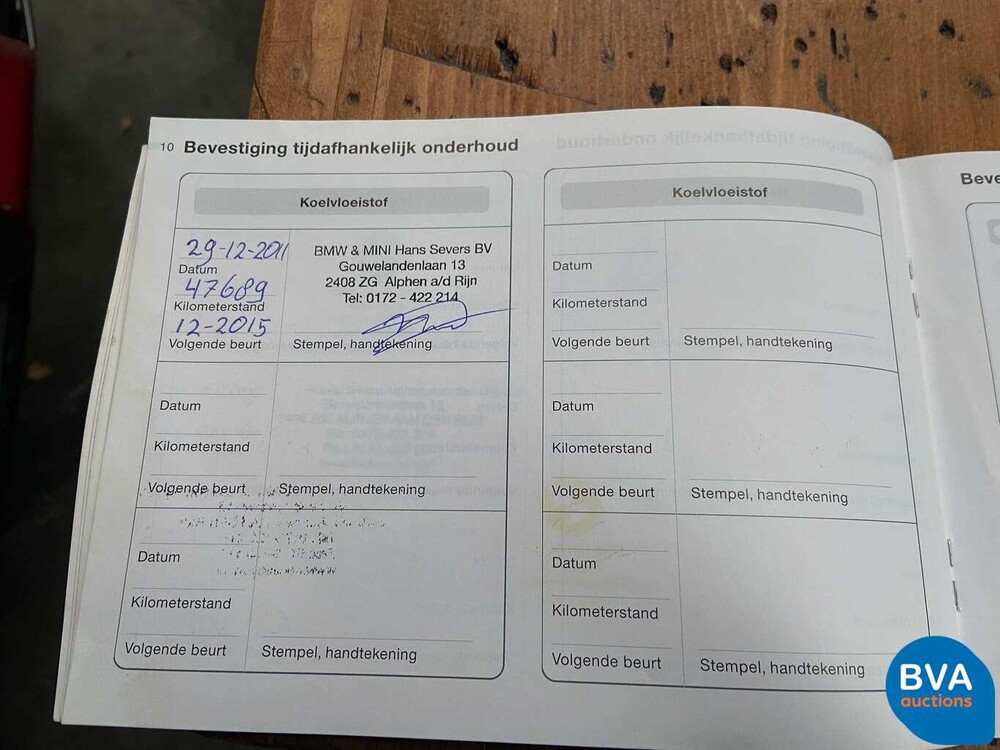 10 Bevestiging tijdafhankelijk onderhoud
Koelvloeistof
29-12-2011
Datum
47689
Kilometerstand
12-2015
Volgende beurt
BMW & MINI Hans Severs BV
Gouwelandenlaan 13
2408 ZG Alphen a/d Rijn
Tel: 0172 - 422 214
Stempel, handtekening
Datum
Kilometerstand
Volgende beurt
Stempel, handtekening
Datum
Kilometerstand
Volgende beurt
Stempel, handtekening
Koelvloeistof
Datum
Kilometerstand
Volgende beurt
Stempel, handtekening
Datum
Kilometerstand
Volgende beurt
Stempel, handtekening
Datum
Kilometerstand
Volgende beurt
Stempel, handtekening
Beve
BVA
auctions